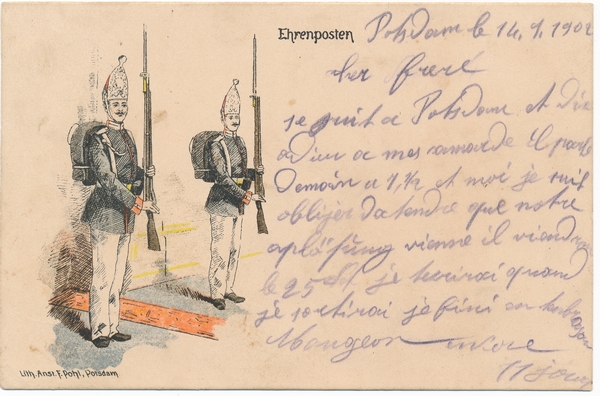 Ehrenposten
Potsdam le 14, 9, 1902
Cher freré
je suit a Potsdam et die
adieu a mes camarde Il parte
Demain a 7, ½ et moi je suit
oblijer datendre que notre
aplöfŭng vienne il viendra
le 25 je quand
je sortirai je fini en
Mangeon encore
11 jour
Lith. Anst. F. Pohl, Potsdam